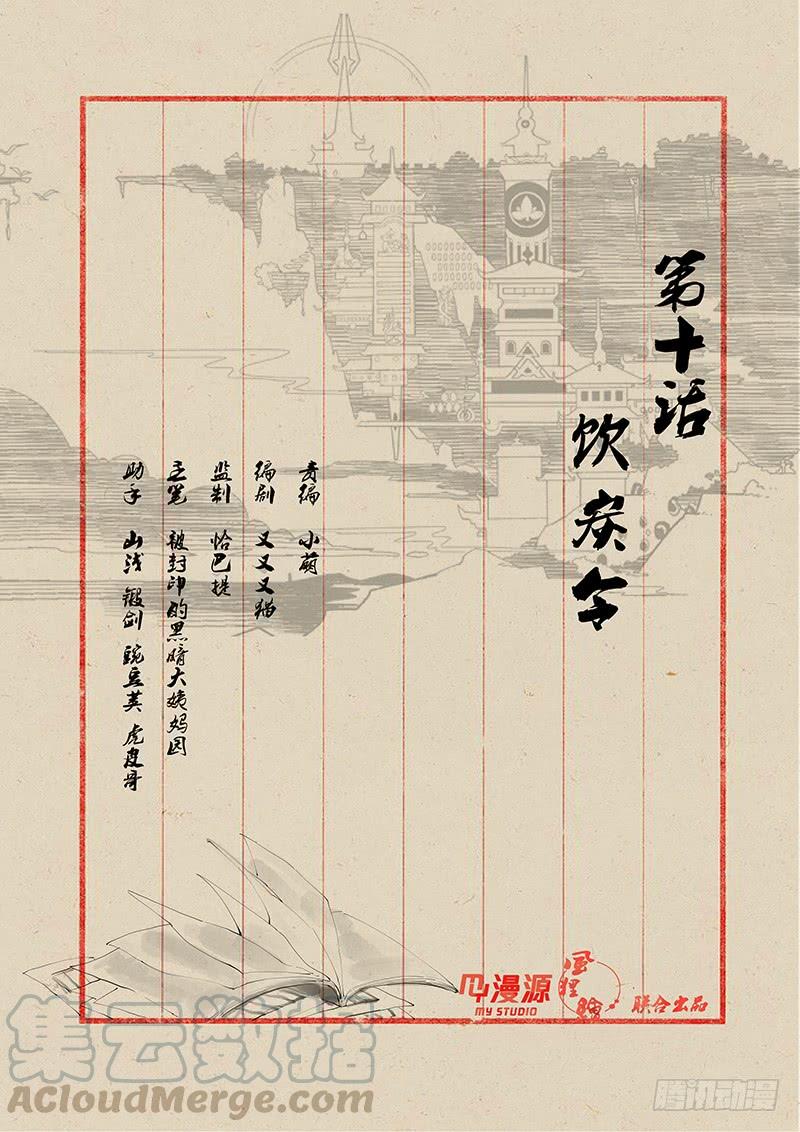 第十话
饮炭令
责编 小萌
编剧 又又又猫
监制 恰巴提
主笔 被封印的黑暗大姨妈园
助手 山浅 银剑 豌豆荚 虎皮哥
漫源
MY STUDIO
联合出品
集云数据
ACloudMerge.com
腾讯动漫